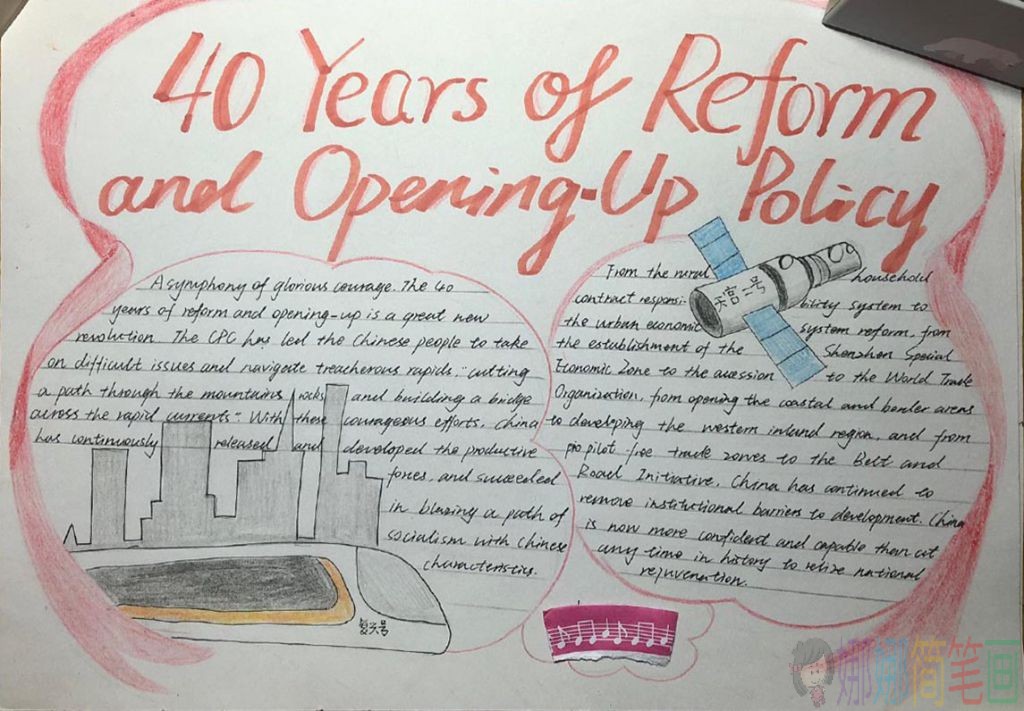 40 Years of Reform
and Opening-Up Policy
A symphony of glorious courage. The 40
years of reform and opening-up is a great new
revolution. The CPC has led the Chinese people to take
on difficult issues and navigate treacherous rapids, "cutting
a path through the mountains, rocks and building a bridge
across the rapid currents". With these courageous efforts, China
has continuously released and developed the productive
forces, and succeeded
in blazing a path of
socialism with Chinese
characteristics.
复兴号
From the rural household
contract responsi- bility system to
the urban economic system reform, from
the establishment of the Shenzhen Special
Economic Zone to the accession to the World Trade
Organization, from opening the coastal and border areas
to developing the western inland region, and from
pio pilot free trade zones to the Belt and
Road Initiative, China has continued to
remove institutional barriers to development. China
is now more confident and capable than at
any time in history to relize national
rejuvenation.
天宫二号
娜娜简笔画